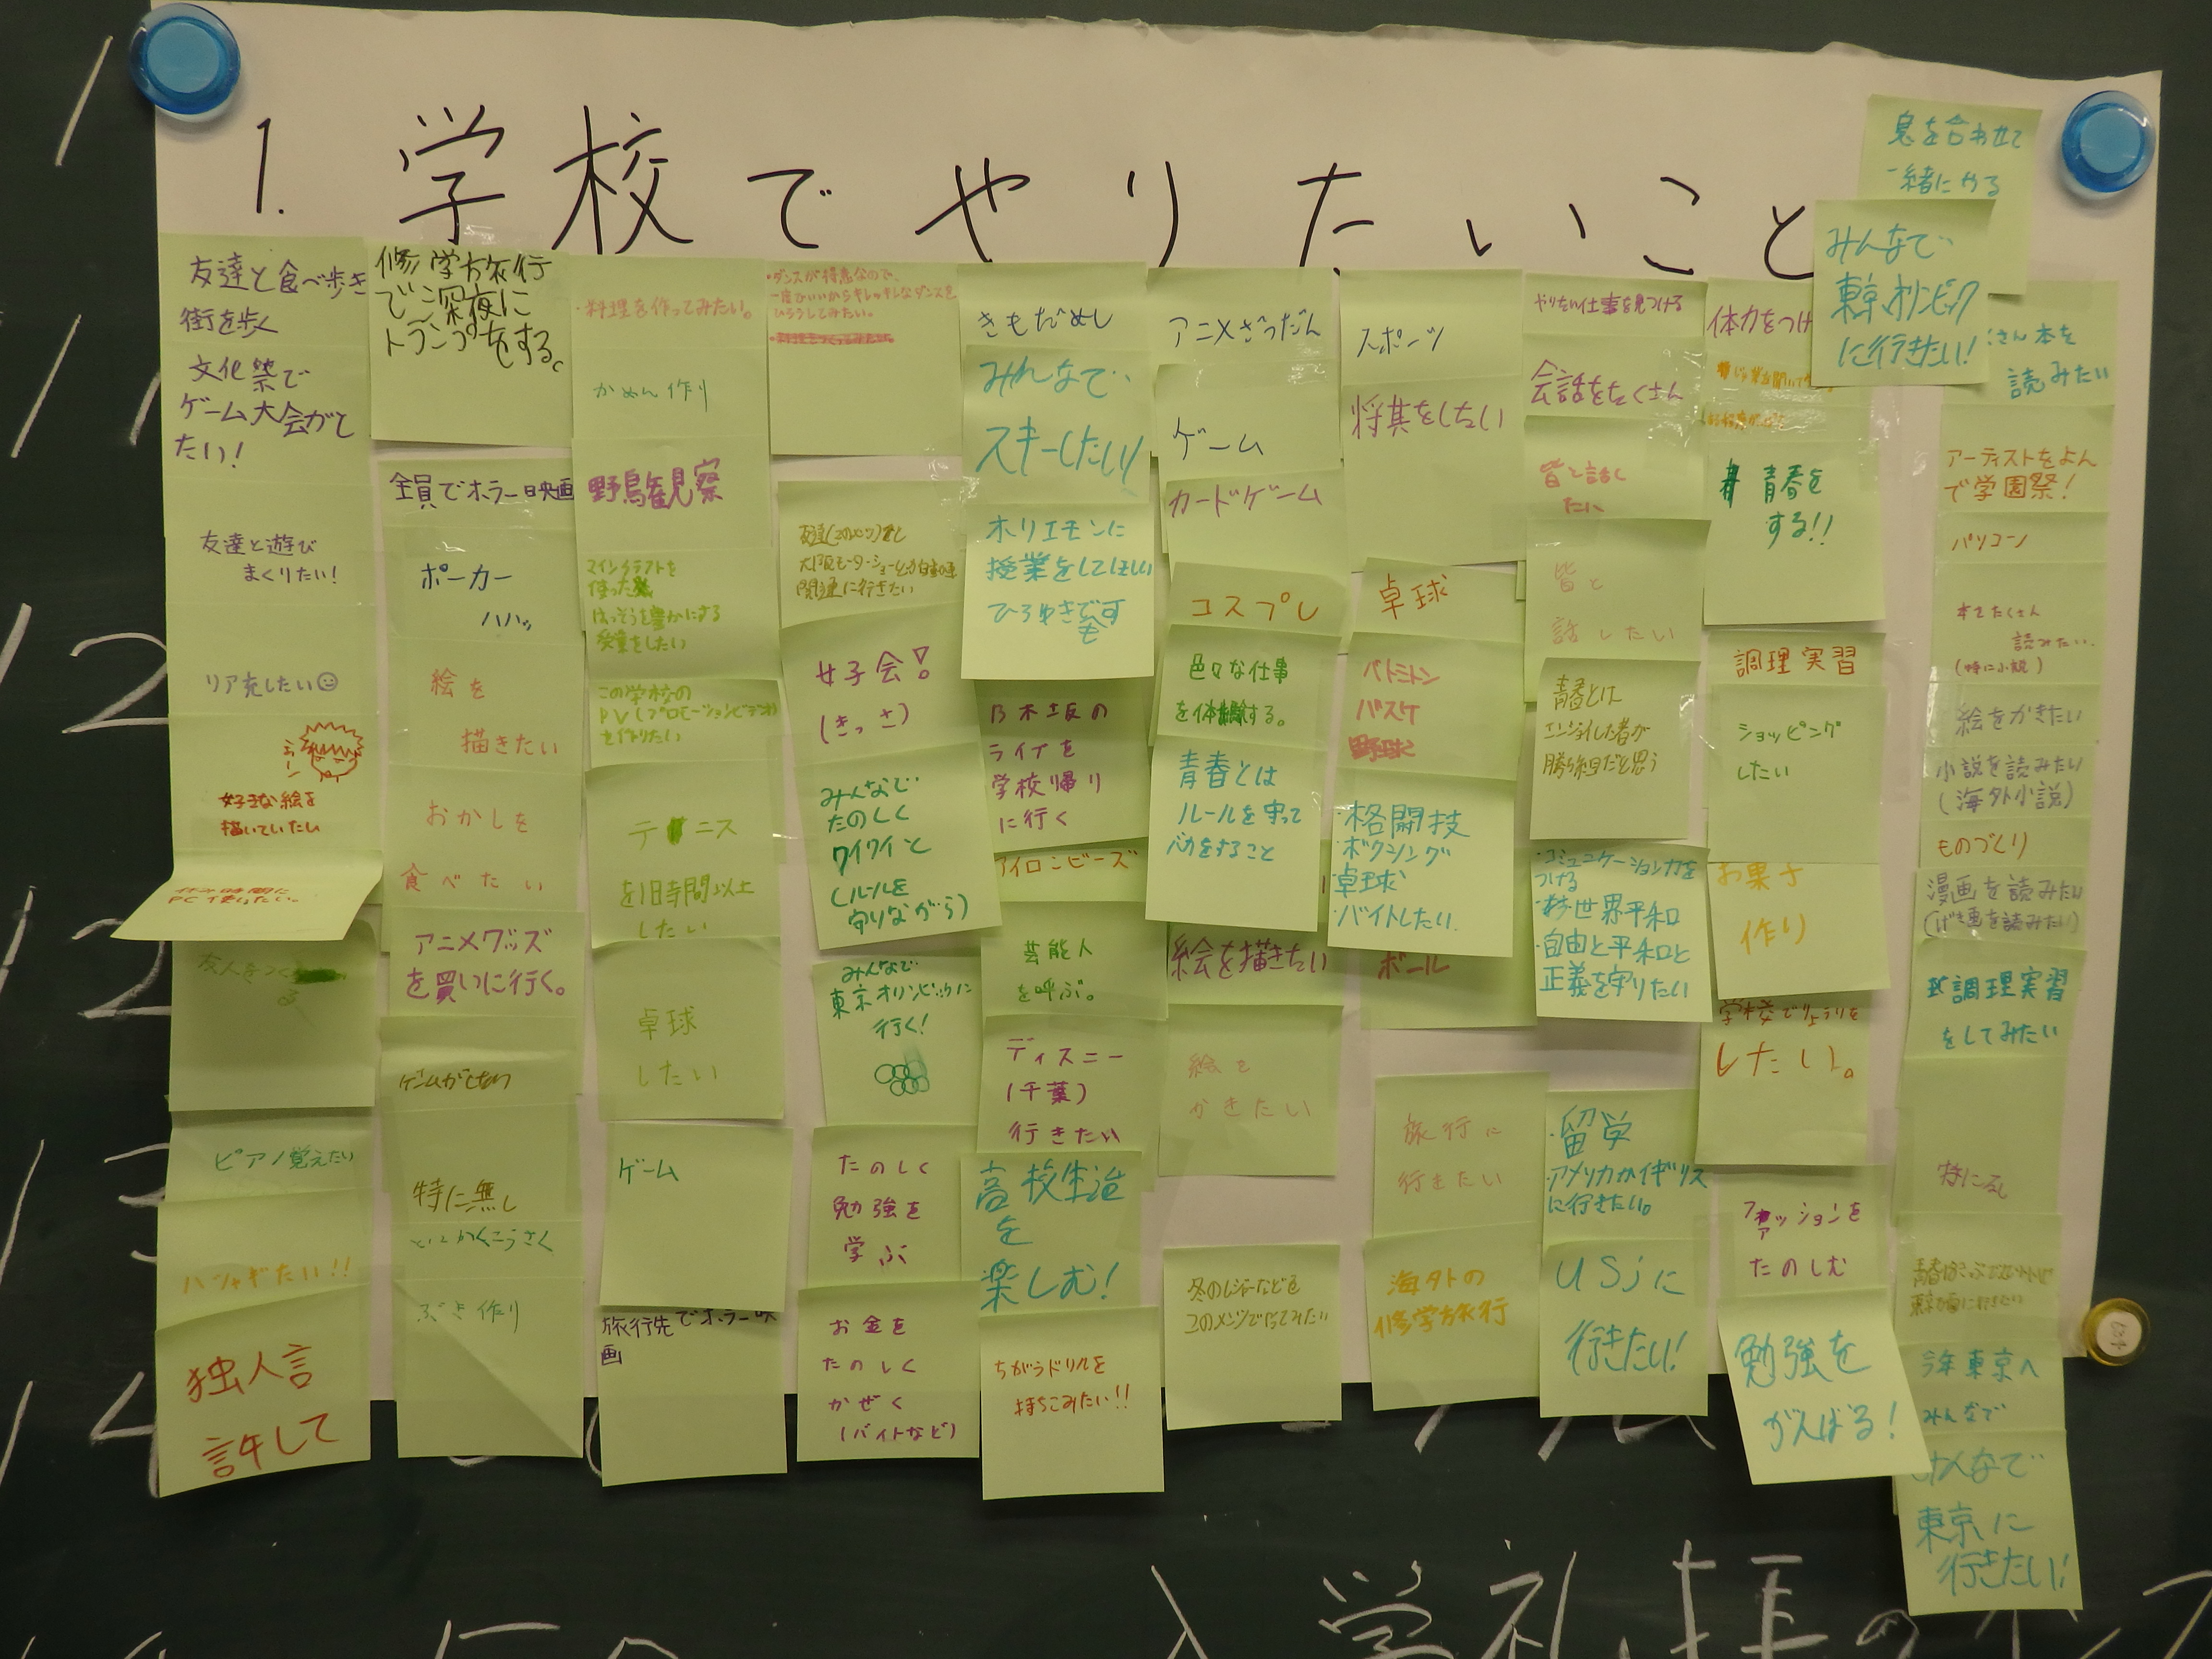 1. 学校でやりたいこと
友達と食べ歩き
街を歩く
文化祭で
ゲーム大会がし
たい!
友達と遊び
まくりたい!
リア充したい
好きな絵を
描いていたい
休み時間に
PC使いたい。
友人をつく
る
ピアノ覚えたい
ハシャギたい!!
独人言
許して
修学旅行
でご深夜に
トランプをする。
全員でホラー映画
ポーカー
ハハッ
絵を
描きたい
おかしを
食べたい
アニメグッズ
を買いに行く。
ゲームがしたい
特に無し
とにかくこうさく
ぶき作り
・料理を作ってみたい。
かめん作り
野鳥観察
マインクラフトを
使った
はっそうを豊かにする
授業をしたい
この学校の
PV(プロモーションビデオ)
を作りたい
テニス
を1日時間以上
したい
卓球
したい
ゲーム
旅行先でホラー映
画
・ダンスが得意なので、
一度でいいからキレッキレなダンスを
ひろうしてみたい。
関連に行きたい
女子会!
(きっさ)
みんなで
たのしく
ワイワイと
(ルールを
守りながら)
みんなで
東京オリンピックに
行く!
たのしく
勉強を
学ぶ
お金を
たのしく
かせぐ
(バイトなど)
きもだめし
みんなで
スキーしたい!
ホリエモンに
授業をしてほしい
ひろゆきでも
乃木坂の
ライブを
学校帰り
に行く
アイロンビーズ
芸能人
を呼ぶ。
ディズニー
(千葉)
行きたい
高校生活
を
楽しむ!
ちがうドリルを
持ちこみたい!!
アニメざつだん
ゲーム
カードゲーム
コスプレ
色々な仕事
を体験する。
青春とは
ルールを守って
をすること
絵を描きたい
絵を
かきたい
冬のレジャーなどを
このメンツでやってみたい
スポーツ
将棋をしたい
卓球
バトミトン
バスケ
野球
・格闘技
・ボクシング
卓球
・バイトしたい.
ボール
旅行に
行きたい
海外の
修学旅行
やりたい仕事を見つける
会話をたくさん
皆と話し
たい
皆と
話したい
青春とは
エンジョイした者が
勝ち組だと思う
・コミュニケーション力を
つける
・世界平和
・自由と平和と
正義を守りたい
・留学
・アメリカかイギリス
に行きたい。
USJに
行きたい!
体力をつけ
青春を
する!!
調理実習
ショッピング
したい
お菓子
作り
学校で
したい。
ファッションを
たのしむ
勉強を
がんばる!
息を合わせて
一緒にやる
みんなで
東京オリンピック
に行きたい!
さん本を
読みたい
アーティストをよん
で学園祭!
パソコン
本をたくさん
読みたい.
(特に小説)
絵をかきたい
小説を読みたい
(海外小説)
ものづくり
漫画を読みたい
(げき画を読みたい)
調理実習
をしてみたい
特になし
今年東京へ
みんなで
みんなで
東京に
行きたい!
入学礼拝の